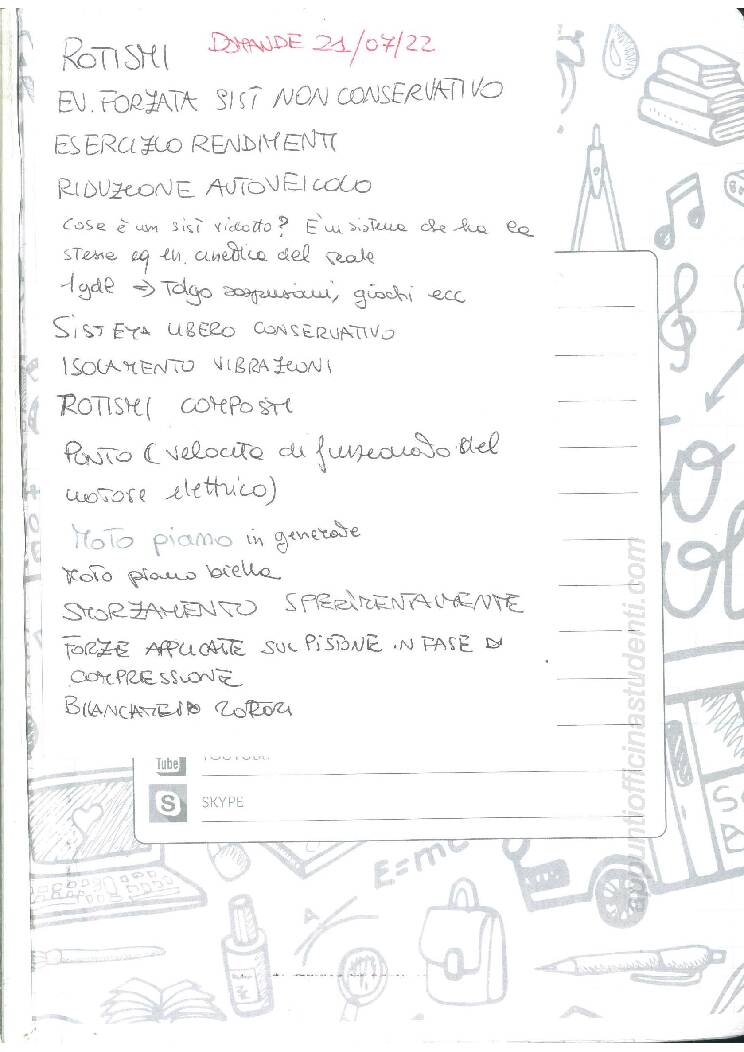 DOMANDE 21/07/22
ROTISMI
EV. FORZATA SIST NON CONSERVATIVO
ESERCIZIO RENDIMENTI
RIDUZIONE AUTOVEICOLO
Cose è un sist ridotto? È un sistema che ha la
stessa eq en. cinetica del reale
1gdl => Tolgo sospensioni, giochi ecc
SISTEMA LIBERO CONSERVATIVO
ISOLAMENTO VIBRAZIONI
ROTISMI COMPOSTI
Punto (velocità di funzionando del
motore elettrico)
Moto piano in generale
Moto piano biella
SMORZAMENTO SPERIMENTALMENTE
FORZE APPLICATE SUL PISTONE IN FASE DI
COMPRESSIONE
BILANCIAMENTO ROTORI
Tube
SKYPE
E=mc
appuntiofficinastudenti.com